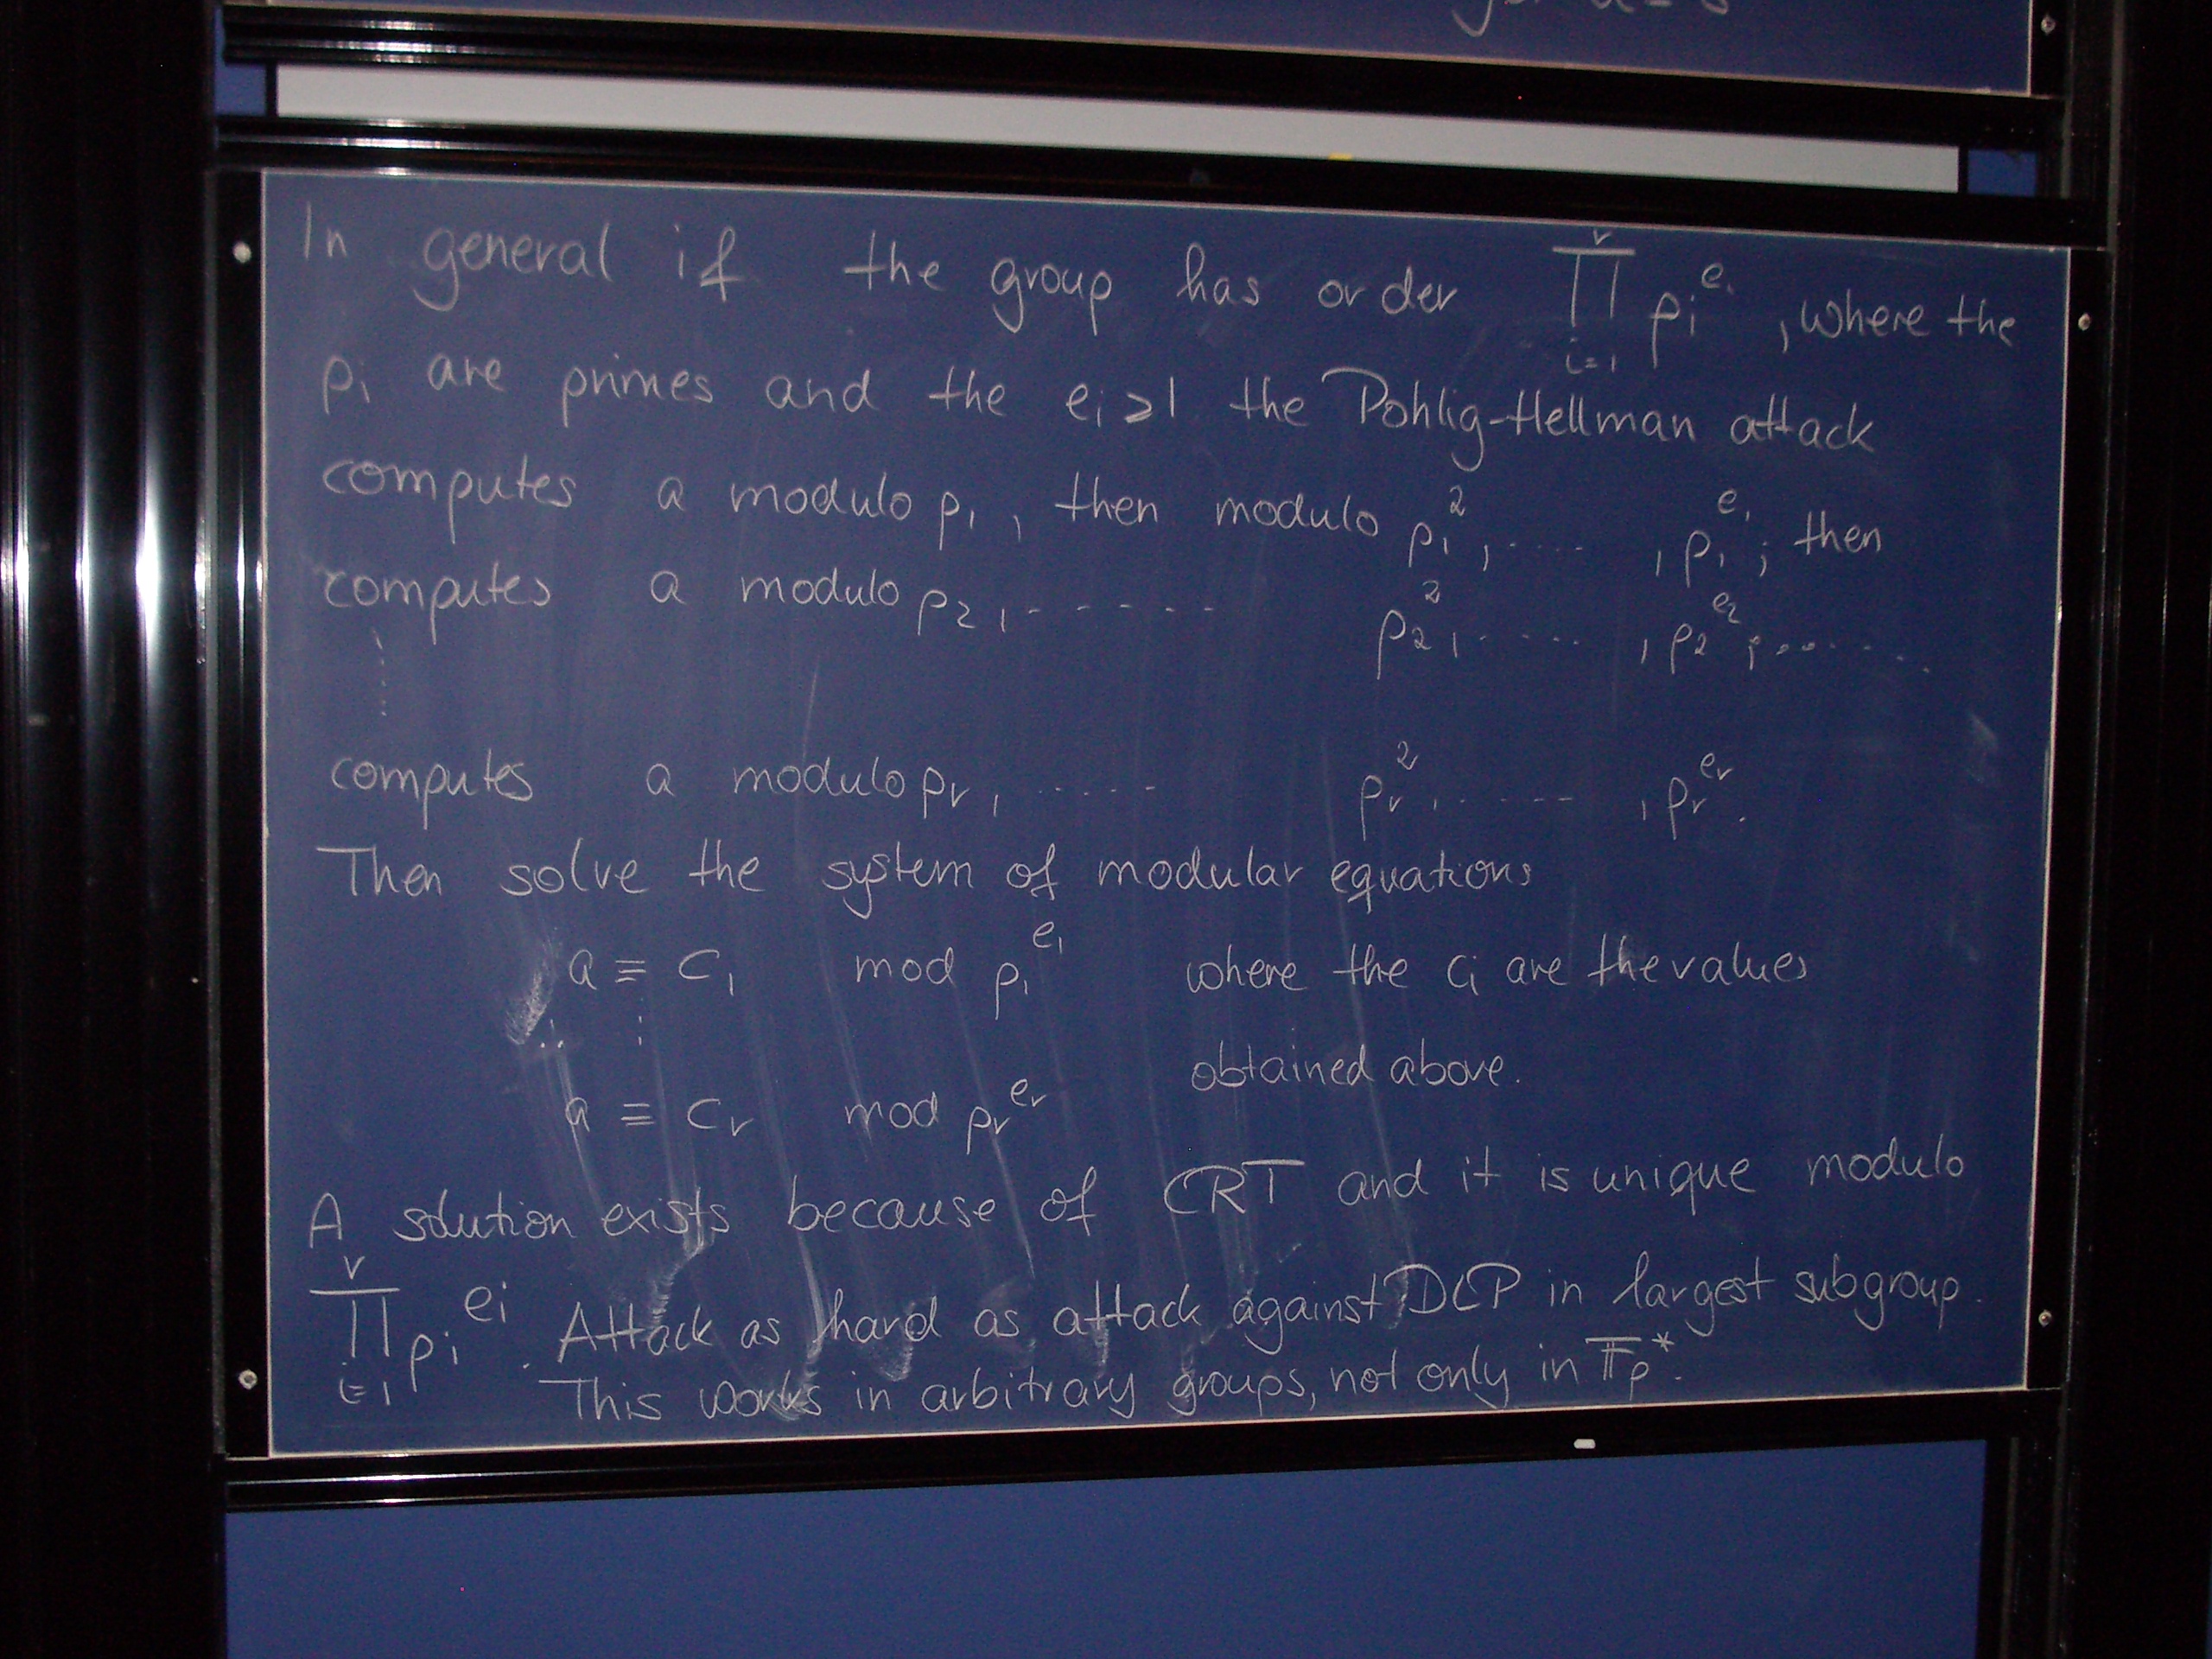 In general if the group has order ∏_{i=1}^{r} p_i^{e_i}, where the
p_i are primes and the e_i ≥ 1 the Pohlig-Hellman attack
computes a modulo p_1, then modulo p_1^2, ....., p_1^{e_1}; then
computes a modulo p_2, ...... p_2^2, ....., p_2^{e_2}; .......
computes a modulo p_r, ..... p_r^2, ....., p_r^{e_r}.
Then solve the system of modular equations
a ≡ c_1 mod p_1^{e_1} where the c_i are the values
obtained above.
a ≡ c_r mod p_r^{e_r}
A solution exists because of CRT and it is unique modulo
∏_{i=1}^{r} p_i^{e_i}. Attack as hard as attack against DLP in largest subgroup.
This works in arbitrary groups, not only in 𝔽_p^*.